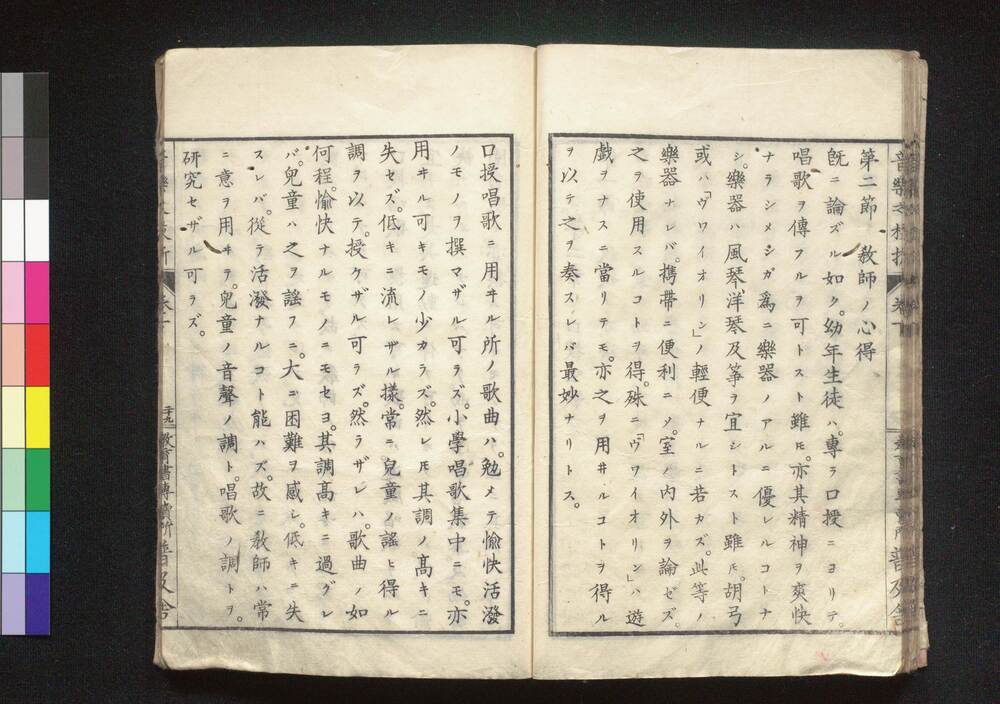 第二節　教師ノ心得
既ニ論ズル如ク。幼年生徒ハ。專ラ口授ニヨリテ。
唱歌ヲ傳フルヲ可トスト雖𪜈。亦其精神ヲ爽快
ナラシメシガ爲ニ樂器ノアルニ優レルコトナ
シ。樂器ハ風琴洋琴及箏ヲ宜シトスト雖𪜈。胡弓
或ハ「ワワイオリン」ノ輕便ナルニ若カズ。此等ノ
樂器ナレバ。携帶ニ便利ニシ。室ノ内外ヲ論ゼズ。
之ヲ使用スルコトヲ得。殊ニ「ワワイオリン」ハ遊
戯ヲナスニ當リテモ。亦之ヲ用井ルコトヲ得ル
ヲ以テ之ヲ奏スレバ最妙ナリトス。
口授唱歌ニ用ヰル所ノ歌曲ハ。勉メテ愉快活潑
ノモノヲ撰マザル可ラズ。小學唱歌集中ニモ。亦
用ヰル可キモノ少カラズ。然レ𪜈其調ノ髙キニ
失セズ。低キニ流レザル樣。常ニ兒童ノ謠ヒ得ル
調ヲ以テ。授ケザル可ラズ。然ラザレハ。歌曲ノ如
何程。愉快ナルモノニモセヨ。其調髙キニ過グレ
バ。兒童ハ之ヲ謠フニ。大ニ困難ヲ感シ。低キニ失
スレバ。從テ活潑ナルコト能ハズ。故ニ敎師ハ常
ニ意ヲ用ヰテ。兒童ノ音聲ノ調ト。唱歌ノ調トヲ。
研究セザル可ラズ。